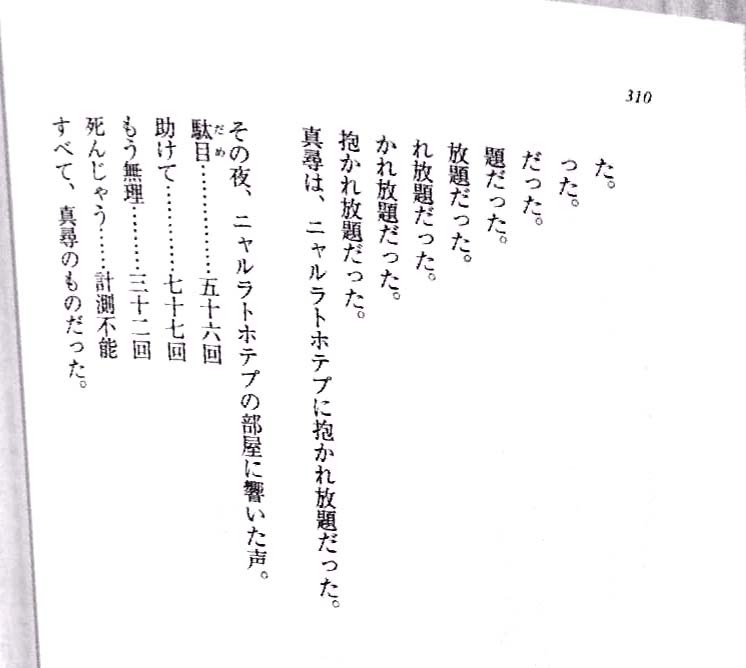 310
た。
った。
だった。
題だった。
放題だった。
れ放題だった。
かれ放題だった。
抱かれ放題だった。
真尋は、ニャルラトホテプに抱かれ放題だった。
その夜、ニャルラトホテプの部屋に響いた声。
駄目…………五十六回
だめ
助けて…………七十七回
もう無理………三十二回
死んじゃう……計測不能
すべて、真尋のものだった。